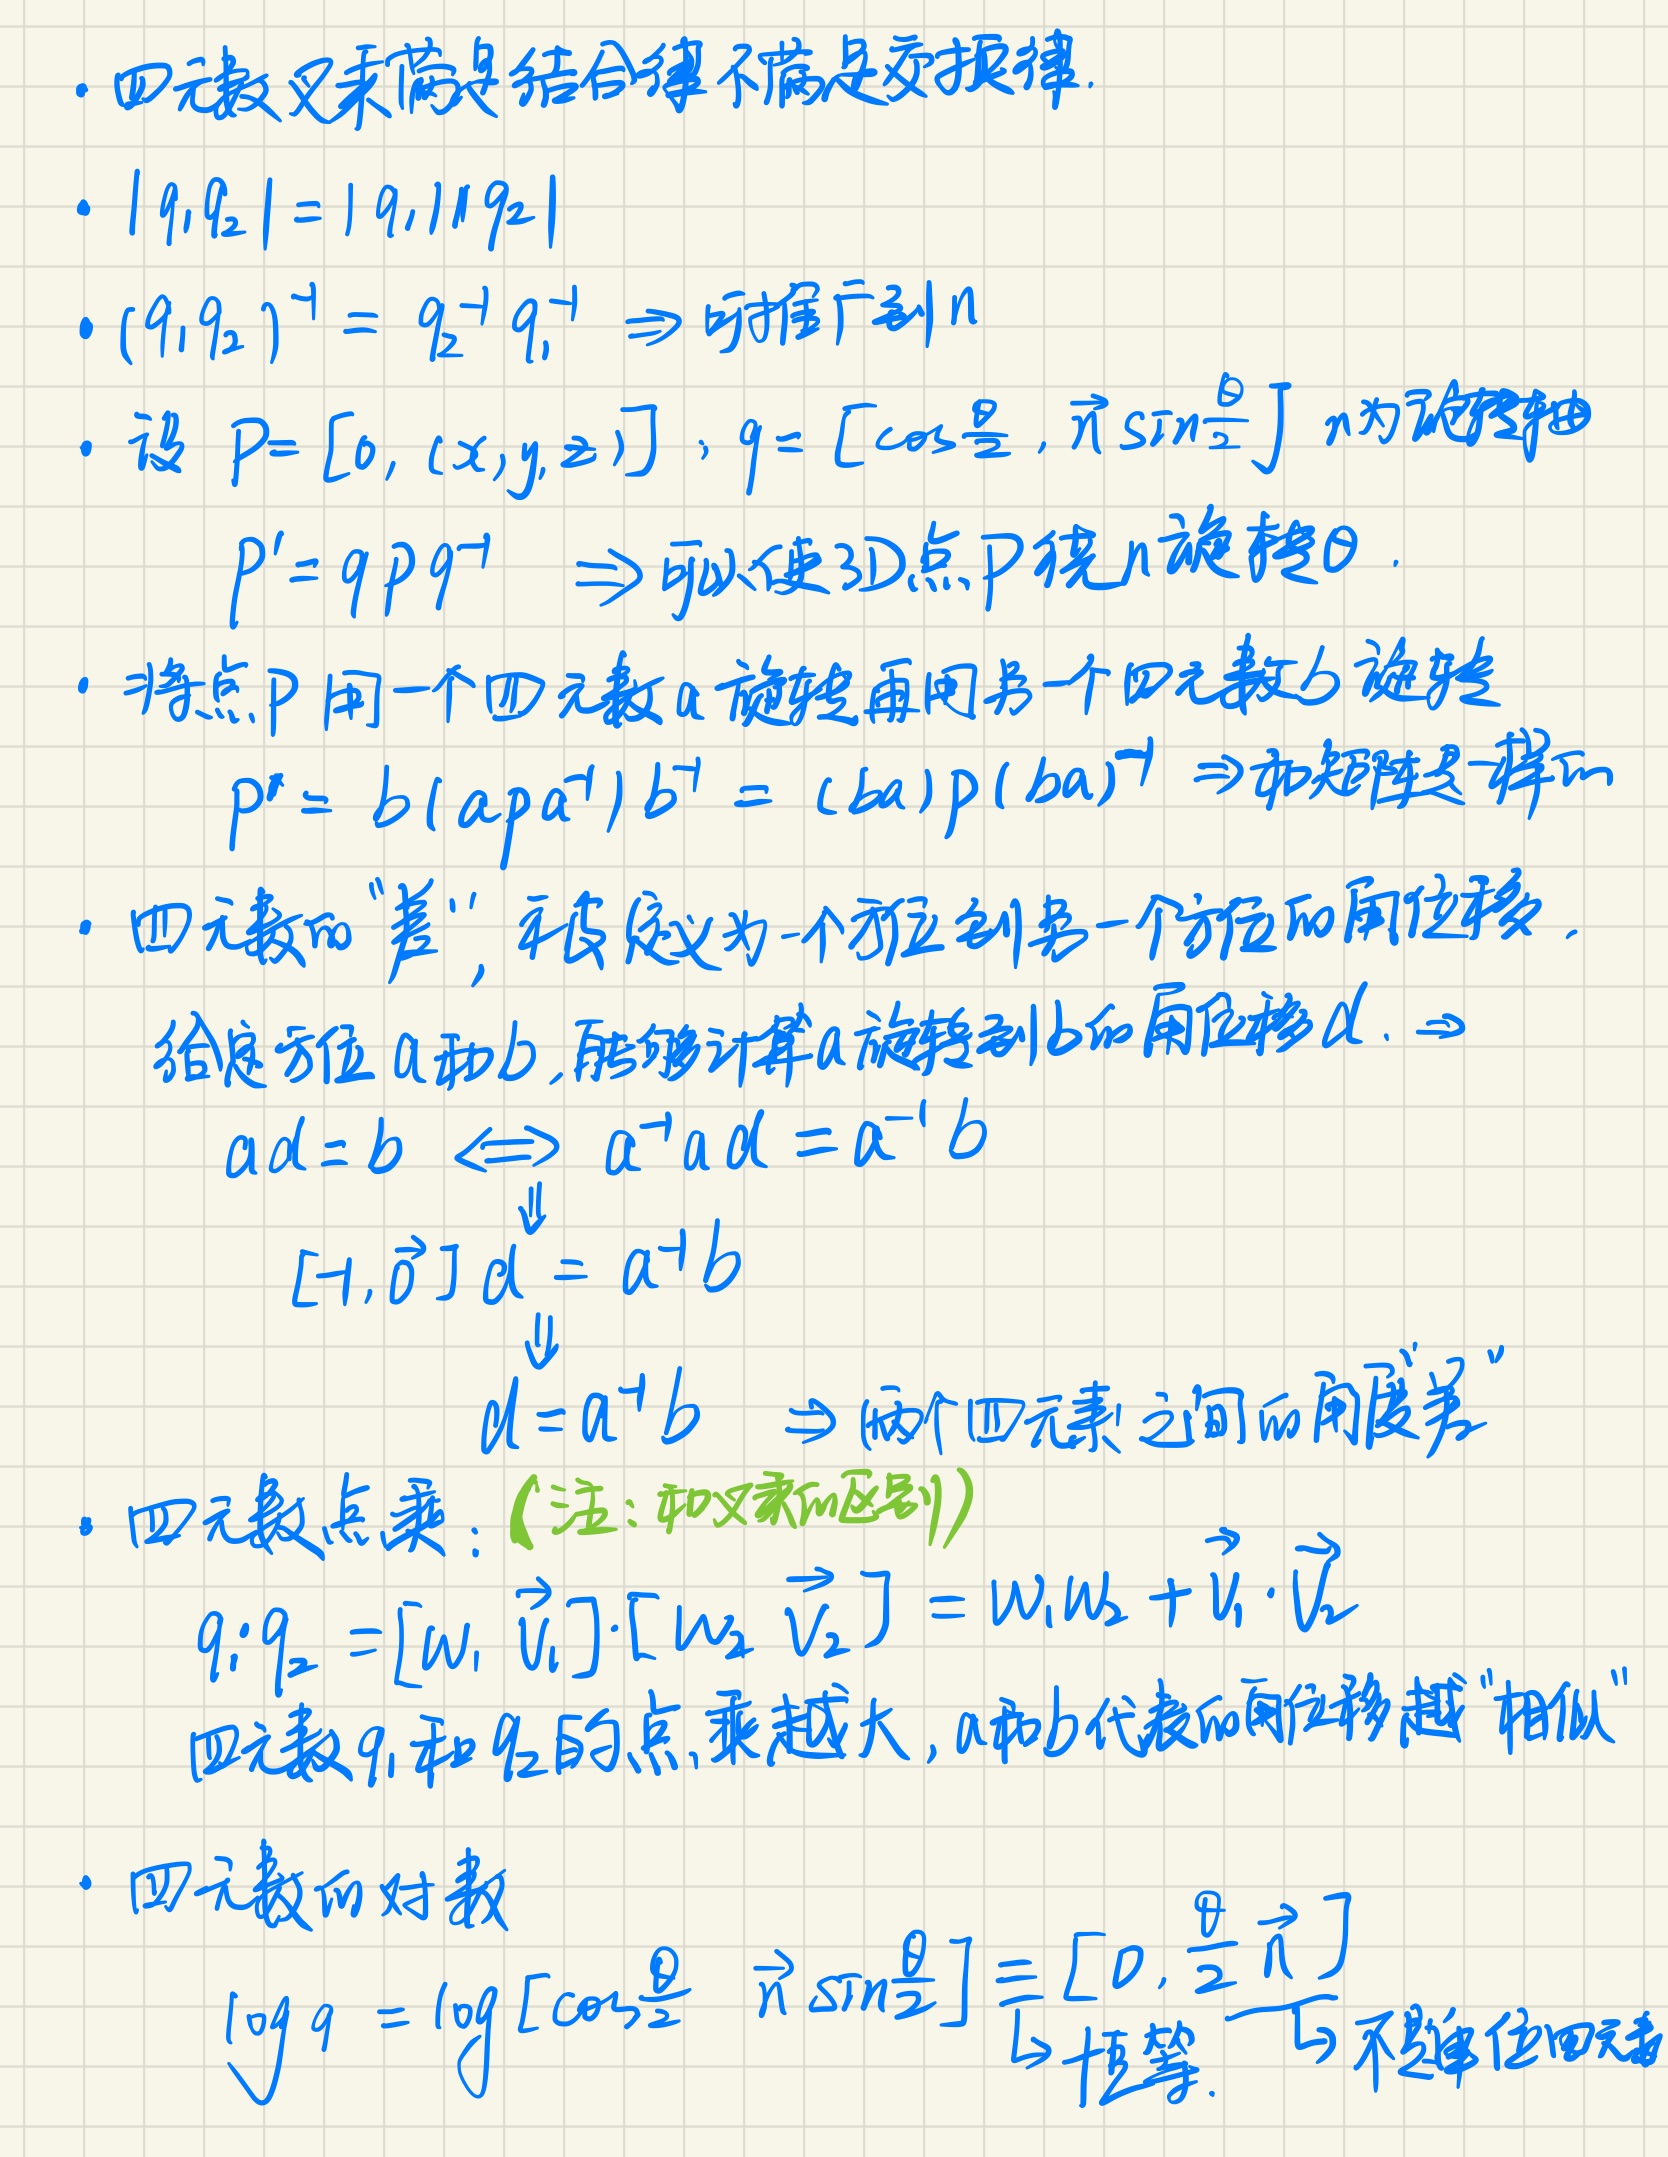 · 四元数叉乘满足结合律不满足交换律.
· |q₁q₂| = |q₁||q₂|
· (q₁q₂)⁻¹ = q₂⁻¹ q₁⁻¹ ⇒ 可推广到n
· 设 P=[0, (x,y,z)], q=[cos θ/2, n⃗ sin θ/2] n为旋转轴
P' = qpq⁻¹ ⇒ 可以使3D点P绕n旋转θ.
· 将点P用一个四元数a旋转再用另一个四元数b旋转
P'' = b(apa⁻¹)b⁻¹ = (ba)p(ba)⁻¹ ⇒ 和矩阵是一样的
· 四元数的“差”, 被定义为一个方位到另一个方位的角位移.
给定方位a和b, 能够计算a旋转到b的角位移d. ⇒
ad=b ⟺ a⁻¹ad = a⁻¹b
⇓
[-1, 0⃗] d = a⁻¹b
⇓
d = a⁻¹b ⇒ 两个四元素之间的“角度差”
· 四元数点乘: (注: 和叉乘的区别)
q₁·q₂ = [w₁ v⃗₁]·[w₂ v⃗₂] = w₁w₂ + v⃗₁·v⃗₂
四元数q₁和q₂的点乘越大, a和b代表的角位移越“相似”
· 四元数的对数
log q = log [cos θ/2 n⃗ sin θ/2] ≡ [0, θ/2 n⃗]
↳ 恒等. ↳ 不是单位四元素